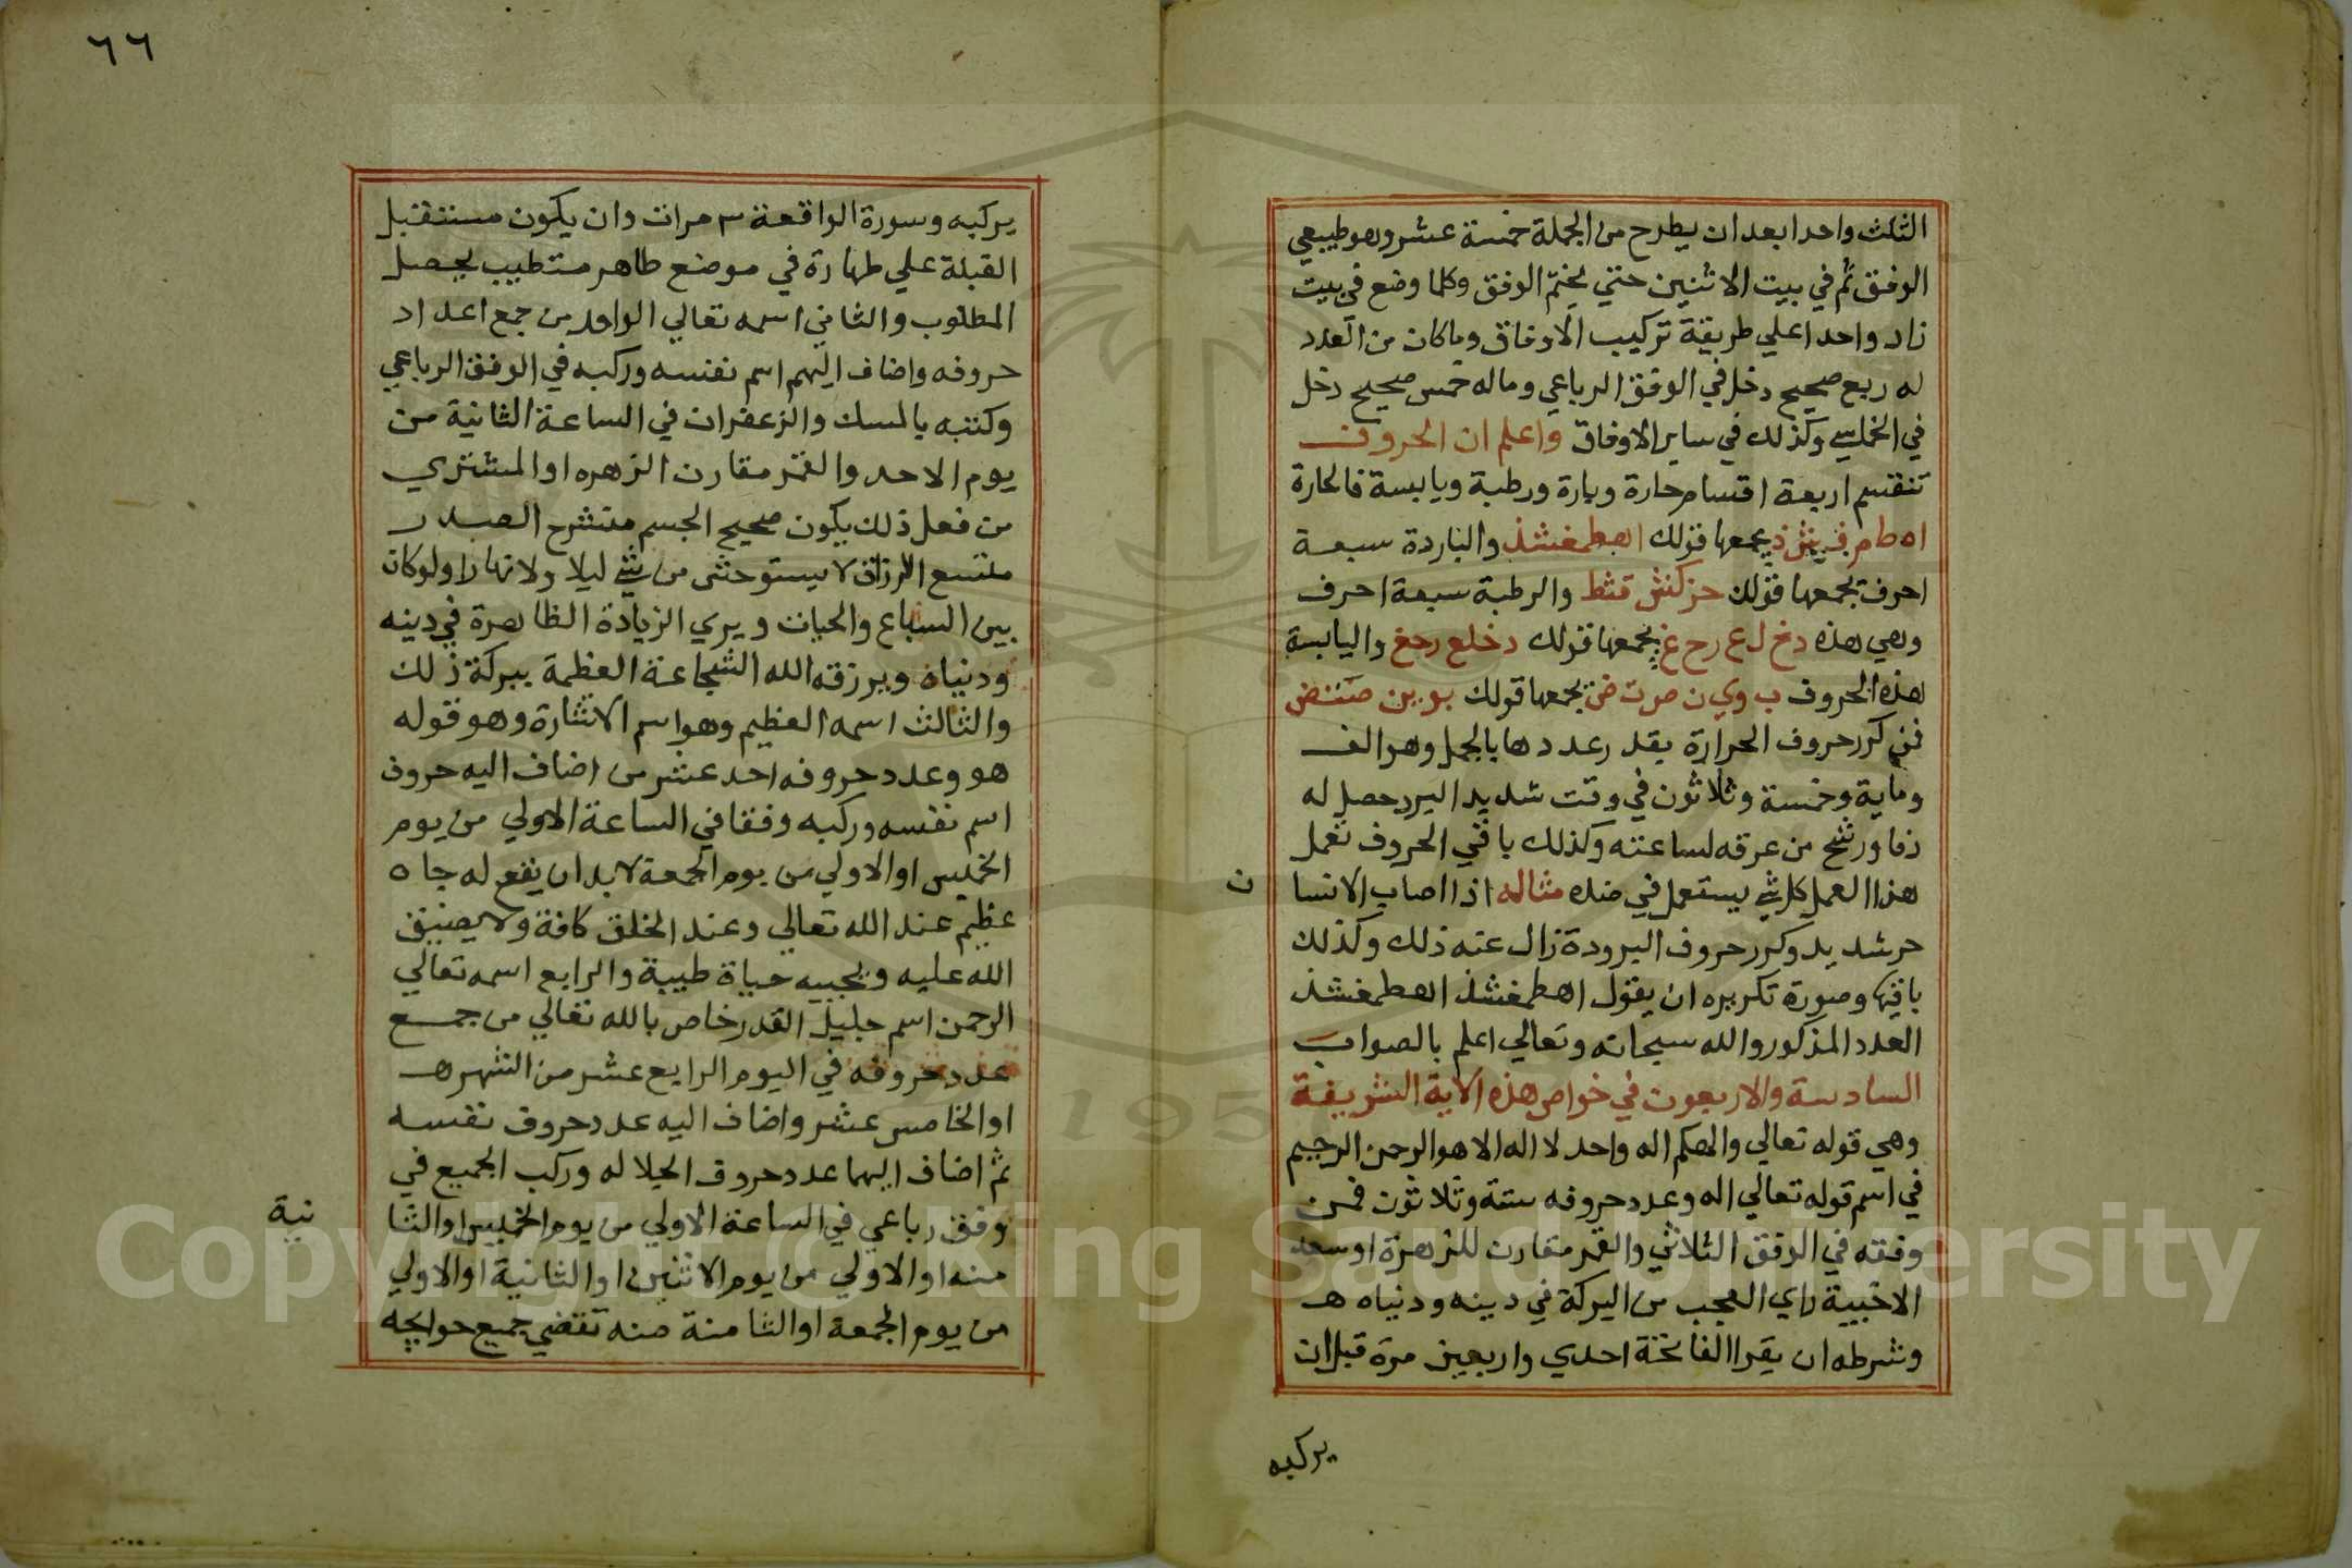 الثلث واحدا بعد ان يطرح من الجملة خمسة عشر وهو طبيعي
الوفق ثم في بيت الاثنين حتي يختم الوفق وكلما وضع في بيت
زاد واحدا علي طريقة تركيب الاوفاق وما كان من العدد
له ربع صحيح دخل في الوفق الرباعي وما له خمس صحيح دخل
في الخماسي وكذلك في ساير الاوفاق واعلم ان الحروف
تنقسم اربعة اقسام حارة وبارة ورطبة ويابسة فالحارة
اه ط م ف ش ذ يجمعها قولك اهطمفشذ والباردة سبعة
احرف يجمعها قولك جزكش قثظ والرطبة سبعة احرف
وهي هذه دخ ل ع رح غ يجمعها قولك دخلع رحغ واليابسة
هذه الحروف ب وي ن ص ت ض يجمعها قولك بوين صتض
فمن كرر حروف الحرارة بقدر عددها بالجمل وهو الف
وماية وخمسة وثلاثون في وقت شديد البرد حصل له
دفا ورشح من عرقه لساعته وكذلك باقي الحروف تعمل
هذا العمل كل شي يستعمل في ضده مثاله اذا اصاب الانسا
ن
حر شديد وكرر حروف البرودة زال عنه ذلك وكذلك
باقيها وصورة تكريره ان يقول اهطمفشذ اهطمفشذ
العدد المذكور والله سبحانه وتعالي اعلم بالصواب
السادسة والاربعون في خواص هذه الاية الشريفة
وهي قوله تعالي والهكم اله واحد لا اله الا هو الرحمن الرحيم
في اسم قوله تعالي اله وعدد حروفه ستة وثلاثون فمن
وفقه في الوفق الثلاثي والقمر مقارن للزهرة او سعد
الاخبية راي العجب من البركة في دينه ودنياه هـ
وشرطه ان يقرا الفاتحة احدي واربعين مرة قبل ان
يركبه
٦٦
يركبه وسورة الواقعة ٣ مرات وان يكون مستقبل
القبلة علي طهارة في موضع طاهر متطيب يحصل
المطلوب والثاني اسمه تعالي الواحد من جمع اعداد
حروفه واضاف اليهم اسم نفسه وركبه في الوفق الرباعي
وكتبه بالمسك والزعفران في الساعة الثانية من
يوم الاحد والقمر مقارن الزهره او المشتري
من فعل ذلك يكون صحيح الجسم منشرح الصدر
متسع الرزاق لا يستوحش من شي ليلا ولا نهارا ولو كان
بين السباع والحيات ويري الزيادة الظاهرة في دينه
ودنياه ويرزقه الله الشجاعة العظمة ببركة ذلك
والثالث اسمه العظيم وهو اسم الاشارة وهو قوله
هو وعدد حروفه احد عشر من اضاف اليه حروف
اسم نفسه وركبه وفقا في الساعة الاولي من يوم
الخميس او الاولي من يوم الجمعة لا بد ان يقع له جاه
عظيم عند الله تعالي وعند الخلق كافة ولا يضيق
الله عليه ويحييه حياة طيبة والرابع اسمه تعالي
الرحمن اسم جليل القدر خاص بالله تعالي من جمع
عدد حروفه في اليوم الرابع عشر من الشهر هـ
او الخامس عشر واضاف اليه عدد حروف نفسه
ثم اضاف اليهما عدد حروف الجلاله وركب الجميع في
وفق رباعي في الساعة الاولي من يوم الخميس او الثا
نية
منه او الاولي من يوم الاثنين او الثانية او الاولي
من يوم الجمعة او الثامنة منه تقضي جميع حوايجه
Copyright © King Saud University
195